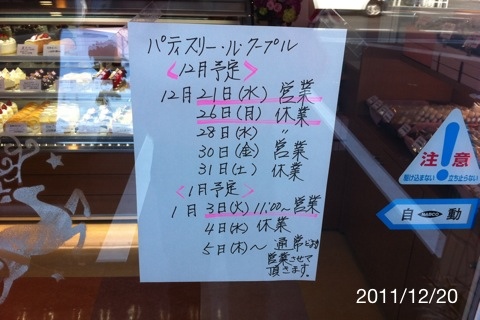 パティスリー・ル・クープル
<12月予定>
12月21日(水) 営業
26日(月) 休業
28日(水) 〃
30日(金) 営業
31日(土) 休業
<1月予定>
1月3日(火) 11:00〜営業
4日(水) 休業
5日(木)〜 通常どおり
営業させて
頂きます。
注意
駆け込まない 立ち止らない
自動
NABCO
2011/12/20